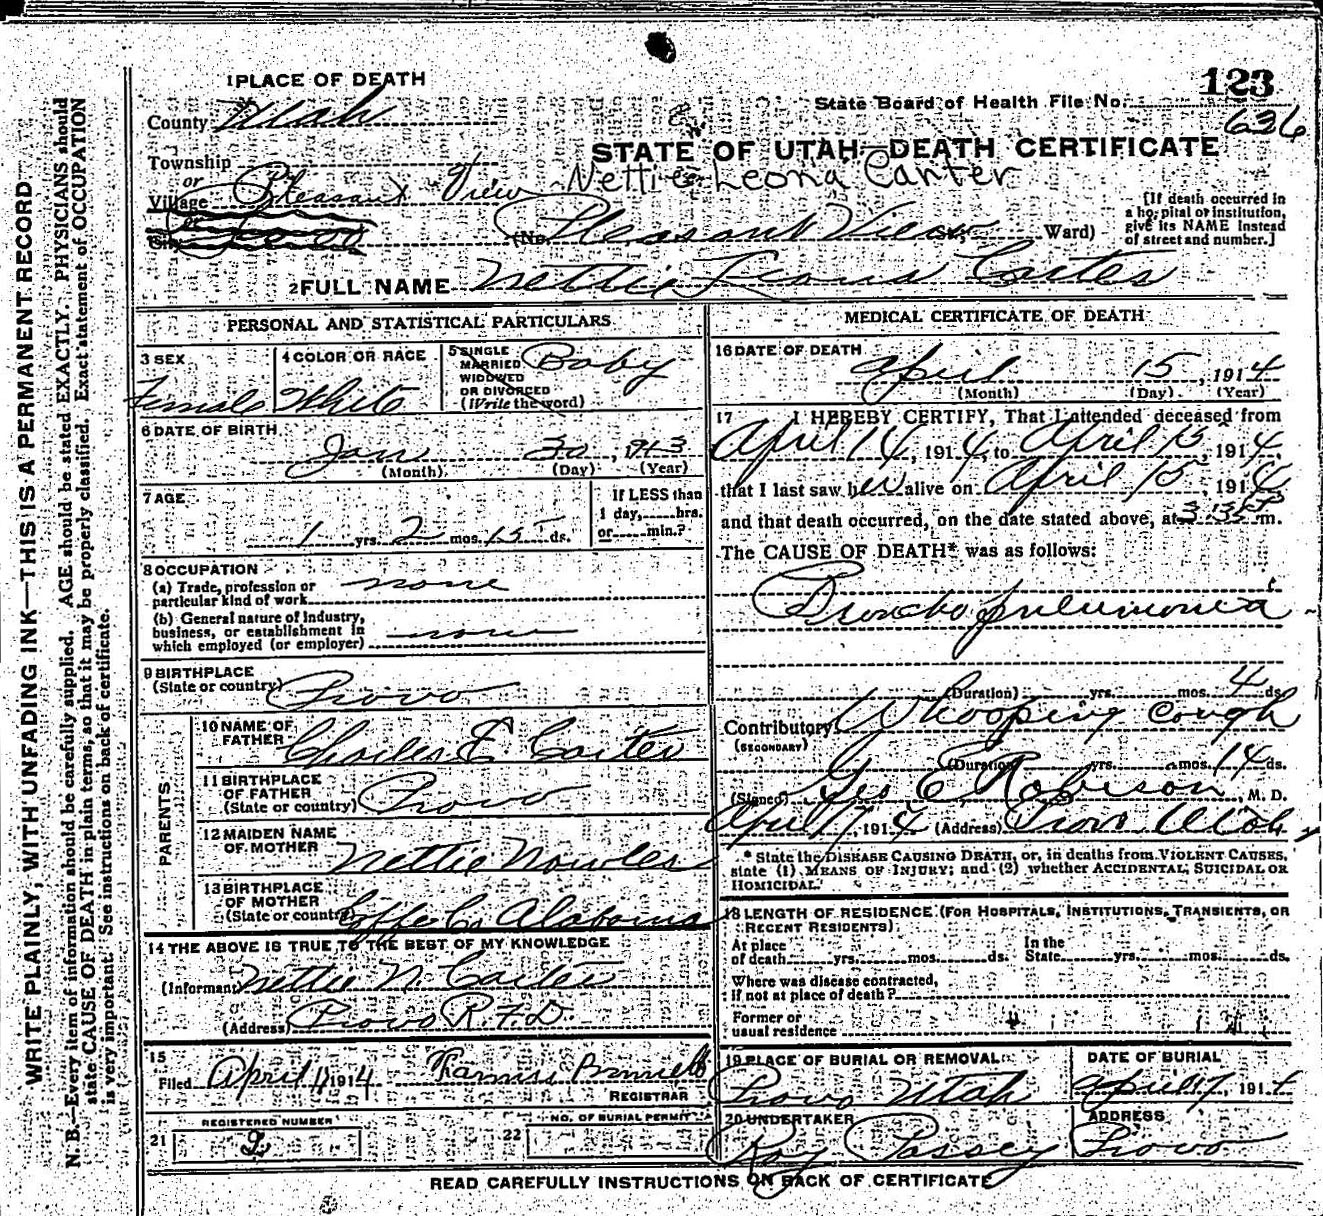 123
State Board of Health File No. 626
1 PLACE OF DEATH
County Utah
STATE OF UTAH—DEATH CERTIFICATE
Township
or
Village Pleasant View
Nettie Leona Carter
or
City
(No. Pleasant View St.; Ward)
[If death occurred in
a hospital or institution,
give its NAME instead
of street and number.]
2 FULL NAME Nettie Leona Carter
WRITE PLAINLY, WITH UNFADING INK—THIS IS A PERMANENT RECORD
N. B.—Every item of information should be carefully supplied. AGE should be stated EXACTLY. PHYSICIANS should
state CAUSE OF DEATH in plain terms, so that it may be properly classified. Exact statement of OCCUPATION
is very important. See instructions on back of certificate.
PERSONAL AND STATISTICAL PARTICULARS
3 SEX
Female
4 COLOR OR RACE
White
5 SINGLE
MARRIED
WIDOWED
OR DIVORCED
(Write the word)
Baby
6 DATE OF BIRTH
Jan 30, 1913
(Month) (Day) (Year)
7 AGE
1 yrs. 2 mos. 15 ds.
If LESS than
1 day, hrs.
or min.?
8 OCCUPATION
(a) Trade, profession or
particular kind of work none
(b) General nature of industry,
business, or establishment in
which employed (or employer) none
9 BIRTHPLACE
(State or country) Provo
PARENTS
10 NAME OF
FATHER Charles E Carter
11 BIRTHPLACE
OF FATHER
(State or country) Provo
12 MAIDEN NAME
OF MOTHER Nettie Nowles
13 BIRTHPLACE
OF MOTHER
(State or country) Coffe Co Alabama
14 THE ABOVE IS TRUE TO THE BEST OF MY KNOWLEDGE
(Informant) Nettie N. Carter
(Address) Provo R.F.D.
15
Filed April 1914
REGISTRAR
REGISTERED NUMBER
21 9
NO. OF BURIAL PERMIT
22
MEDICAL CERTIFICATE OF DEATH
16 DATE OF DEATH
April 15, 1914
(Month) (Day) (Year)
17 I HEREBY CERTIFY, That I attended deceased from
April 14, 1914, to April 15, 1914,
that I last saw her alive on April 15, 1914
and that death occurred, on the date stated above, at 3:35 P m.
The CAUSE OF DEATH* was as follows:
Broncho pneumonia
(Duration) yrs. mos. 4 ds.
Contributory Whooping cough
(SECONDARY)
(Duration) yrs. mos. 14 ds.
(Signed) Geo E Robison, M. D.
April 17, 1914 (Address) Provo Utah
* State the DISEASE CAUSING DEATH, or, in deaths from VIOLENT CAUSES,
state (1) MEANS OF INJURY; and (2) whether ACCIDENTAL, SUICIDAL OR
HOMICIDAL.
18 LENGTH OF RESIDENCE (FOR HOSPITALS, INSTITUTIONS, TRANSIENTS, OR
RECENT RESIDENTS)
At place
of death yrs. mos. ds.
In the
State yrs. mos. ds.
Where was disease contracted,
if not at place of death?
Former or
usual residence
19 PLACE OF BURIAL OR REMOVAL
Provo Utah
DATE OF BURIAL
April 17, 1914
20 UNDERTAKER
Roy Passey
ADDRESS
Provo
READ CAREFULLY INSTRUCTIONS ON BACK OF CERTIFICATE